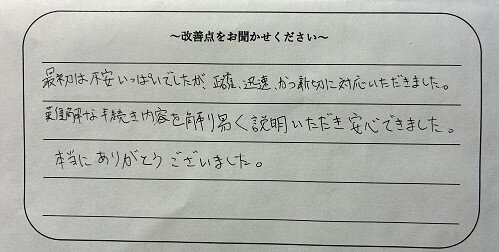 ～改善点をお聞かせください～
最初は不安いっぱいでしたが、正確、迅速、かつ親切に対応いただきました。
難解な手続き内容を解り易く説明いただき安心できました。
本当にありがとうございました。